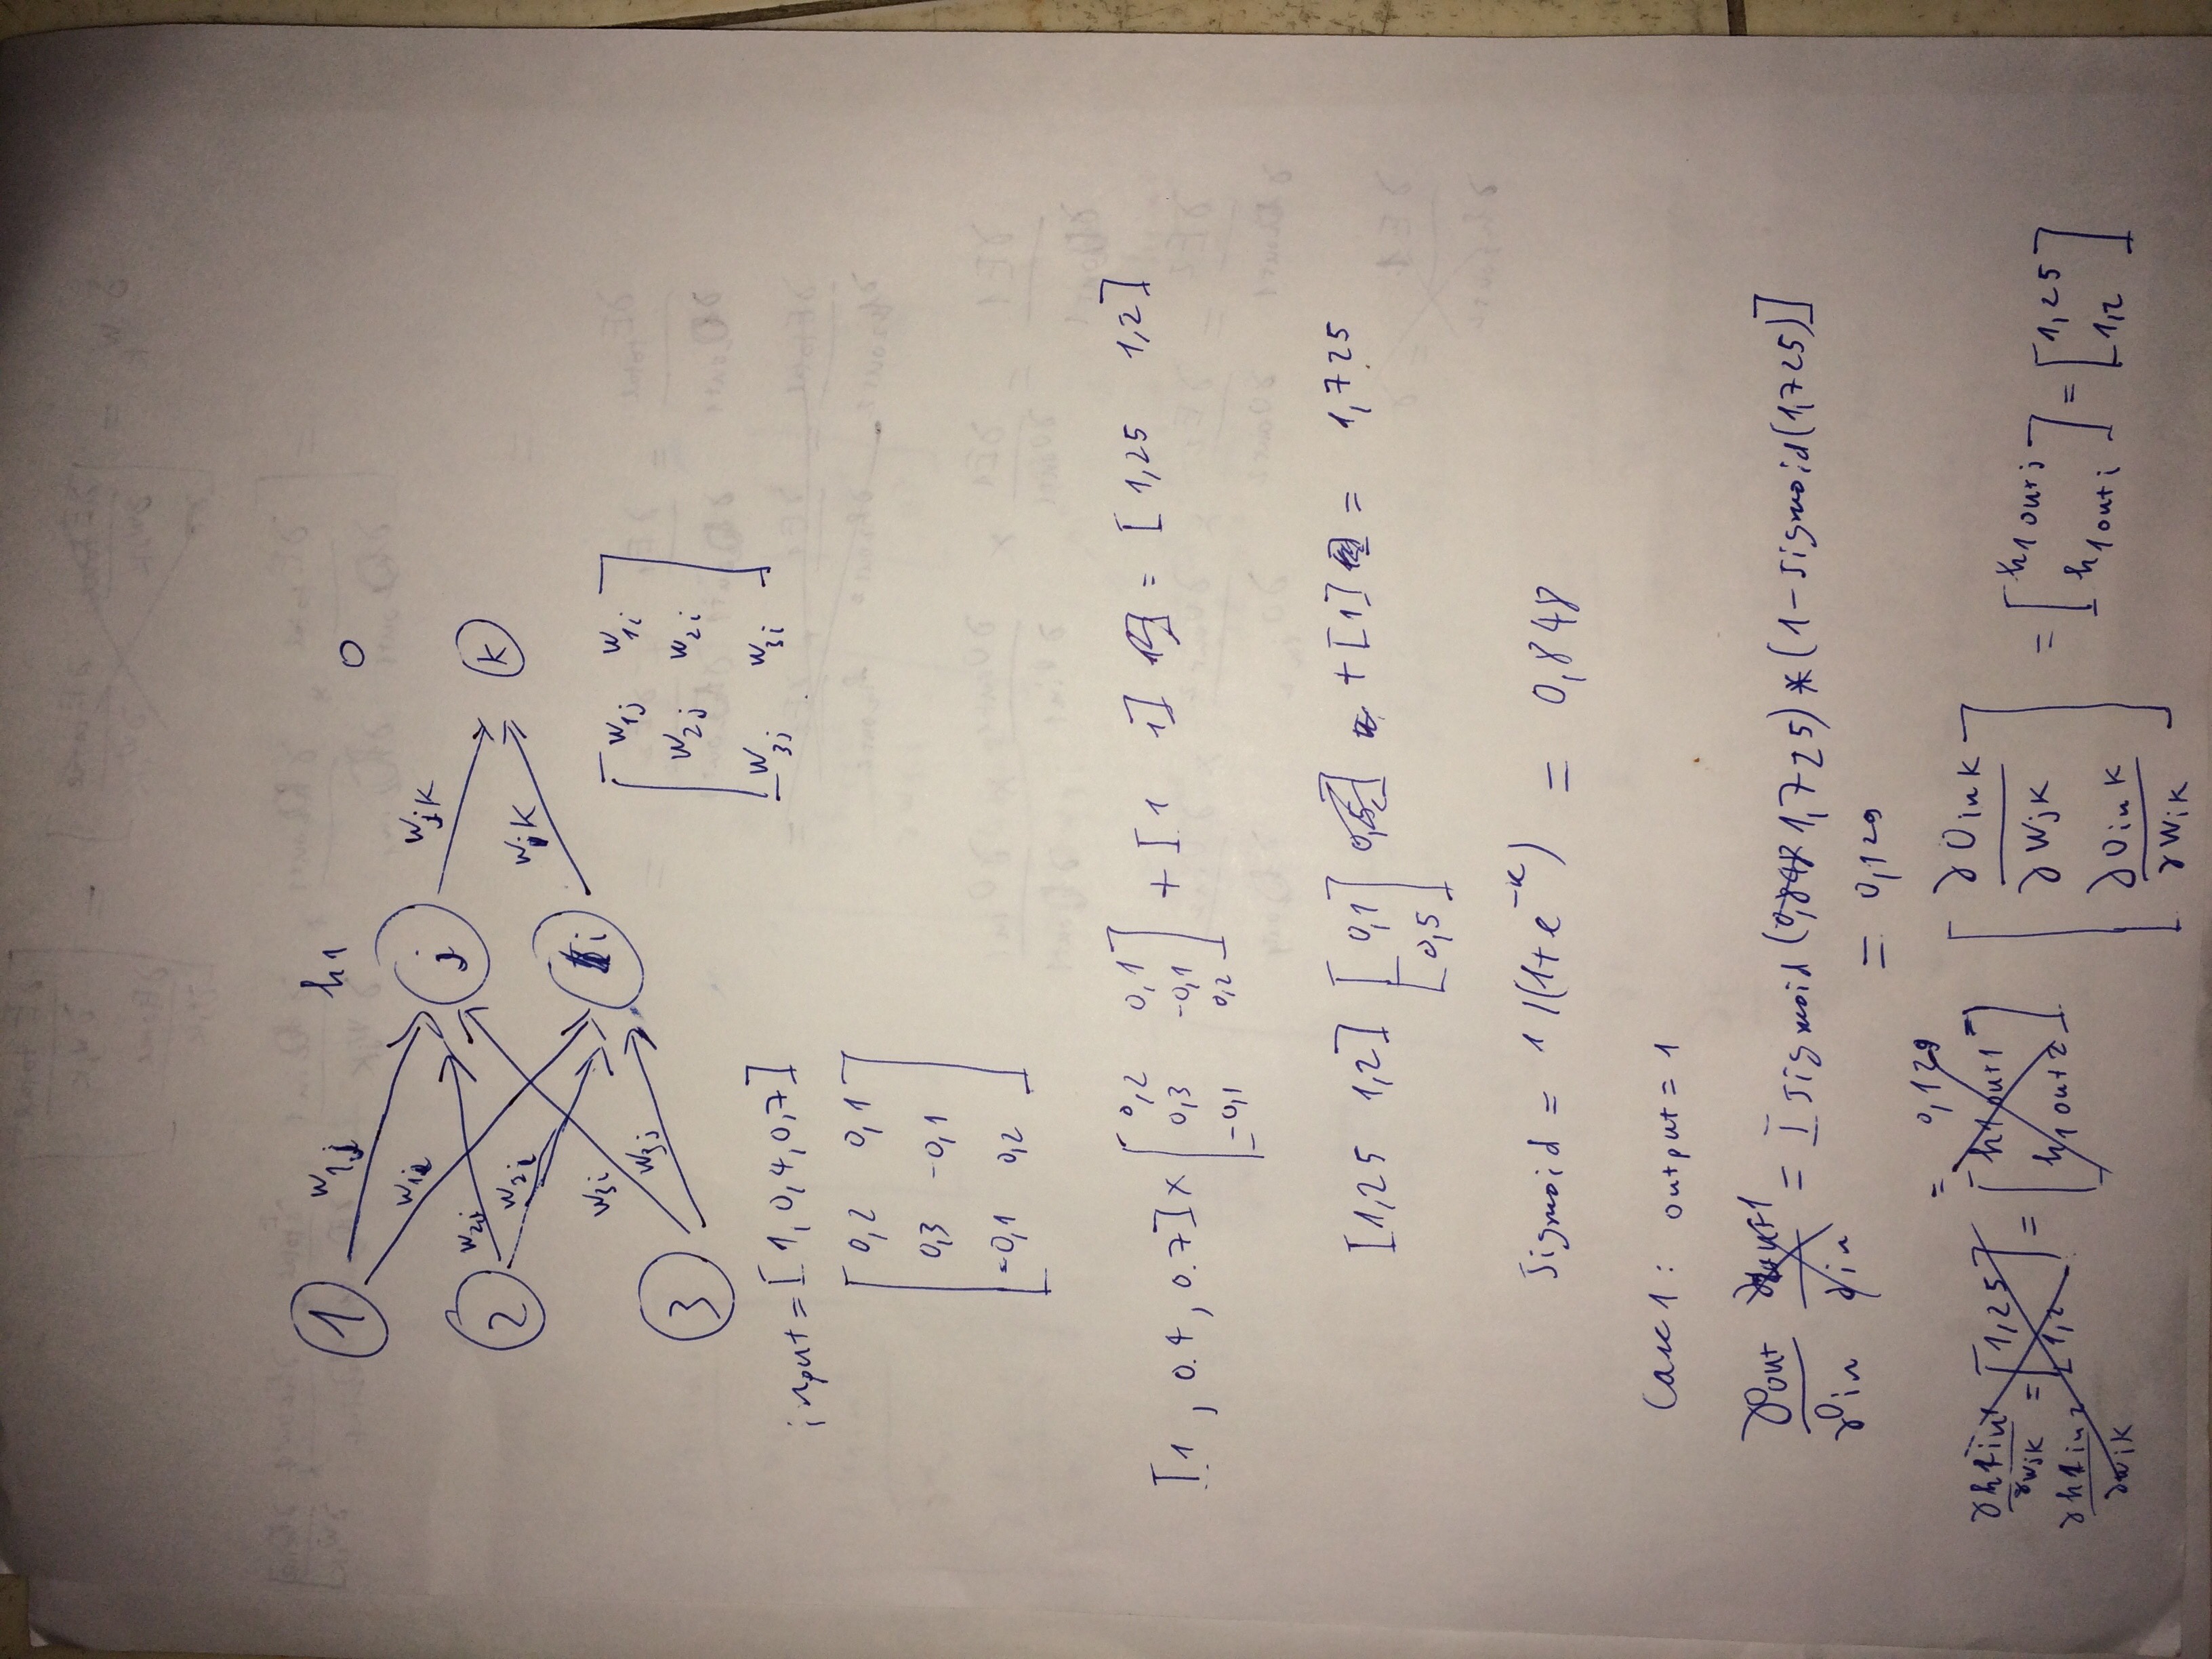 1 w1j h1 O
w1i j wjk
2 w2j k
w2i wik
w3i i
w3j
3
[ w1j w1i
w2j w2i
w3j w3i ]
input = [1, 0,4, 0,7]
[ 0,2 0,1
0,3 -0,1
-0,1 0,2 ]
[1, 0.4, 0.7] × [ 0,2 0,1
0,3 -0,1
-0,1 0,2 ] + [1 1] = [1,25 1,2]
[1,25 1,2] [ 0,1
0,5 ] + [1] = 1,725
Sigmoid = 1/(1+e^-x) = 0,848
Case 1: output = 1
∂Oout / ∂Oin = [Sigmoid(1,725) * (1-Sigmoid(1,725)]
= 0,129
= 0,129
∂h1in1 / ∂wjk = [1,25 = [h1out1
∂h1in2 / ∂wik 1,2] h1out2]
[ ∂Oink / ∂wjk
∂Oink / ∂wik ] = [ h1outj
h1outi ] = [ 1,25
1,2 ]